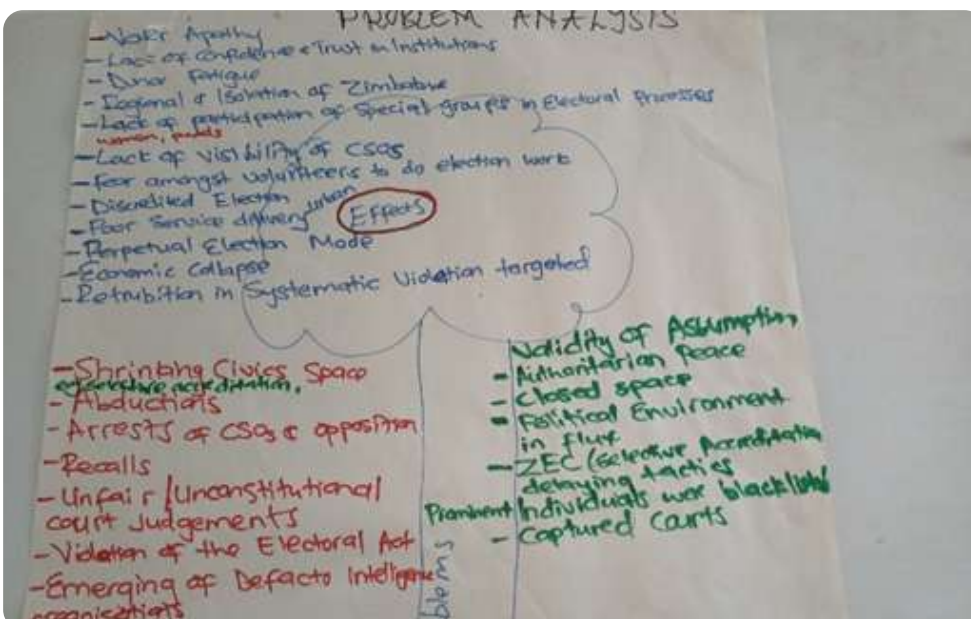 PROBLEM ANALYSIS
- Voter Apathy
- Lack of confidence & Trust in Institutions
- Donor Fatigue
- Regional & Isolation of Zimbabwe
- Lack of participation of Special groups in Electoral Processes
women, pwds
- Lack of visibility of CSOs
- Fear amongst volunteers to do election work
- Discredited Election
- Poor Service delivery urban
Effects
- Perpetual Election Mode
- Economic Collapse
- Retribution in Systematic Violation targeted
- Shrinking Civics Space
eg selective accreditation,
- Abductions
- Arrests of CSOs & opposition
- Recalls
- Unfair/Unconstitutional
court Judgements
- Violation of the Electoral Act
- Emerging of Defacto Intelligence
organisations
blems
Validity of Assumption
- Authoritarian Peace
- Closed space
- Political Environment
in flux
- ZEC (selective Accreditation
delaying tactics
Prominent Individuals were blacklisted
- Captured Courts